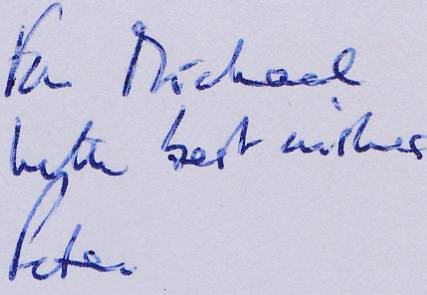 For Michael
with best wishes
Peter.